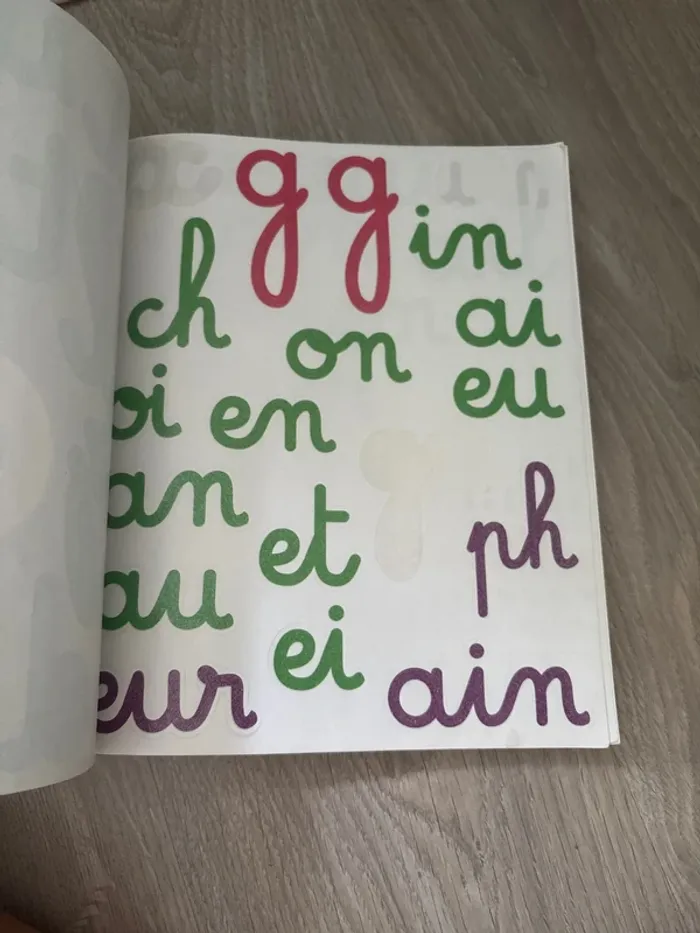 g g
in
ch
on
ai
oi
en
eu
an
et
ph
au
ei
eur
ain